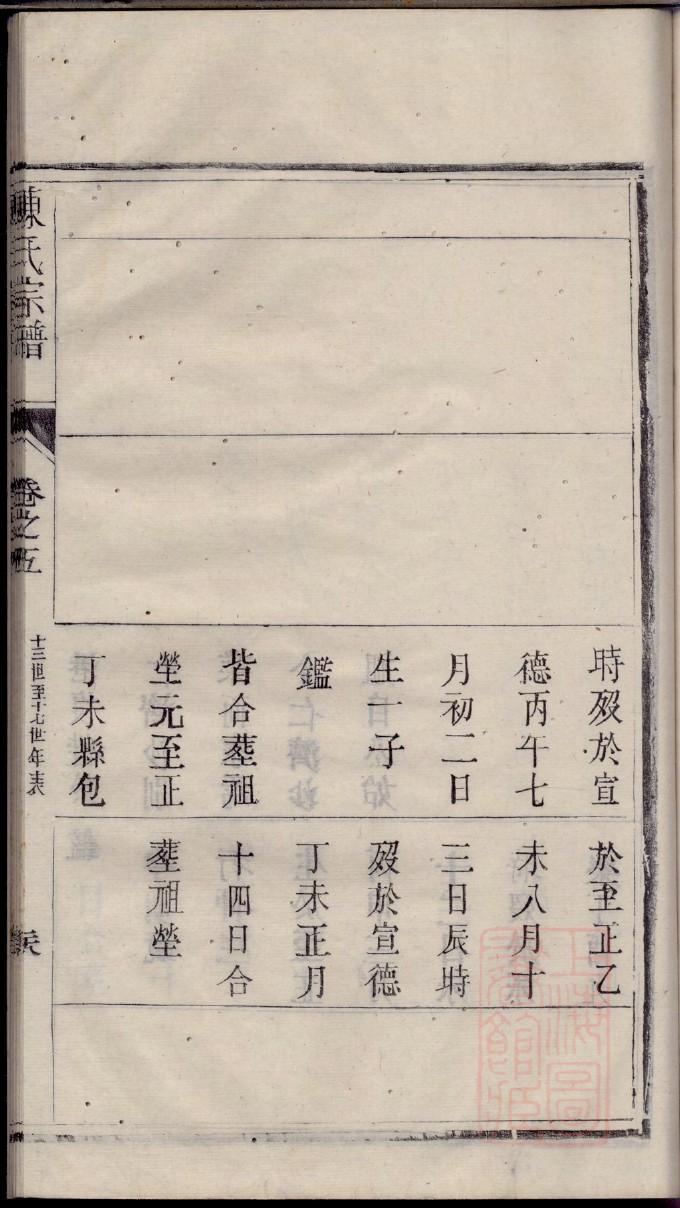 時殁於宣
德丙午七
月初二日
生一子
鑑
皆合塟祖
塋元至正
丁未縣包
於至正乙
未八月十
三日辰時
殁於宣德
丁未正月
十四日合
塟祖塋
陳氏宗譜
卷之五
十三世至十七世年表